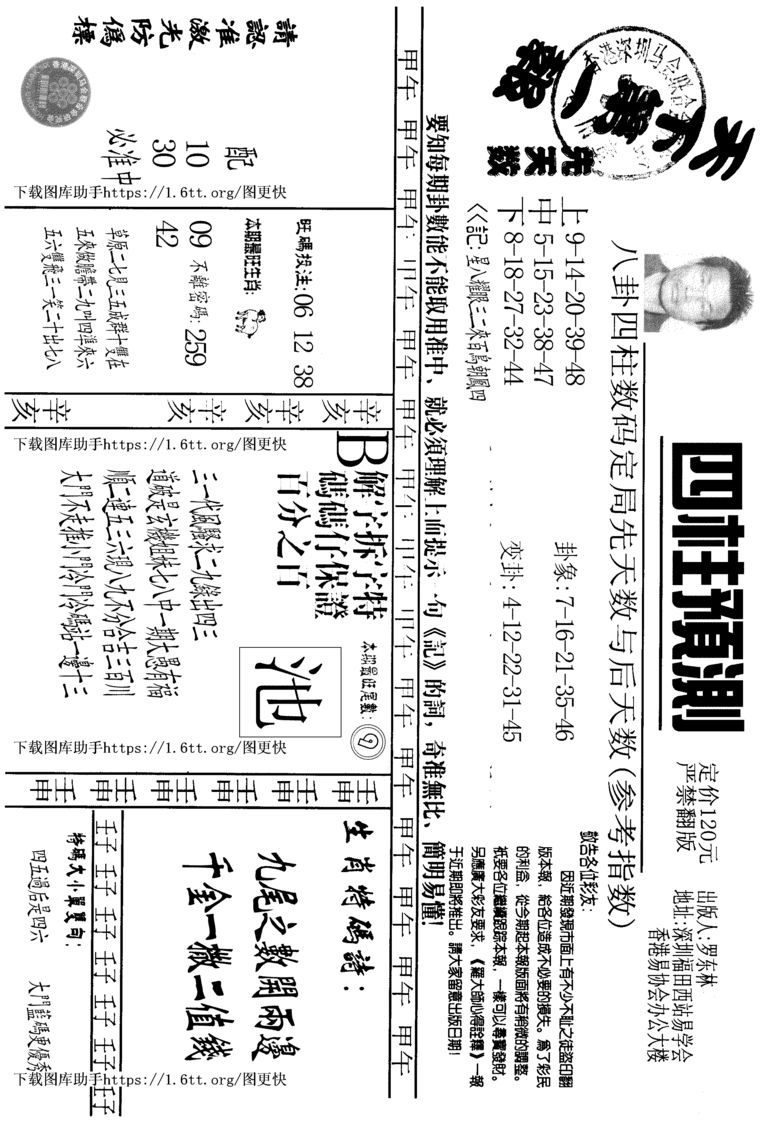 天下第一報
先天数
香港深圳马会联合
四柱預測
定价120元
严禁翻版
出版人:罗东林
地址:深圳福田西站易学会
香港易协会办公大楼
八卦四柱数码定局先天数与后天数(参考指数)
上9-14-20-39-48
中5-15-23-38-47
下8-18-27-32-44
《記:星八耀眼三二來百鳥朝鳳四
卦象:7-16-21-35-46
变卦:4-12-22-31-45
敬告各位彩友:
因近期發現市面上有不少不耻之徒盗印翻
版本報,給各位造成不必要的損失。爲了彩民
的利益,從今期起本報版面將有稍微的調整。
衹要各位繼續跟踪本報,一樣可以尋寶發財。
另應廣大彩友要求,《羅大師心得詮釋》一報
于近期即將推出。請大家留意出版日期!
要知每期卦數能不能取用准中、就必須理解上面提示一句《記》的詞,奇准無比、簡明易懂!
甲午 甲午 甲午 甲午 甲午 甲午 甲午 甲午 甲午 甲午 甲午 甲午 甲午 甲午 甲午
請認准激光防僞標
配
10
30
必准中
下载图库助手https://1.6tt.org/图更快
旺碼投注:06 12 38
本期最旺生肖:
09 不離密碼:259
42
草原二七月三五成群十隻在
五來做膽帶二九叫四準來六
五六雙飛三一笑二十出七八
辛亥 辛亥 辛亥 辛亥 辛亥
下载图库助手https://1.6tt.org/图更快
B解字拆字特
碼碼仔保證
百分之百
本期最旺尾數:9
池
三一代風騷求二九綠出四三
道破是玄機姐妹七八中一期大愚有福
順二連五三六現八九不分合吉三百川
大門不走推小門冷門冷碼站一邊十三
下载图库助手https://1.6tt.org/图更快
壬申 壬申 壬申 壬申 壬申 壬申
生肖特碼詩:
九尾之數開兩邊
千金一擲二值錢
壬子 壬子 壬子 壬子 壬子 壬子 壬子
特碼大小單雙句:
四五過后是四六
大門藍碼更優秀
下载图库助手https://1.6tt.org/图更快